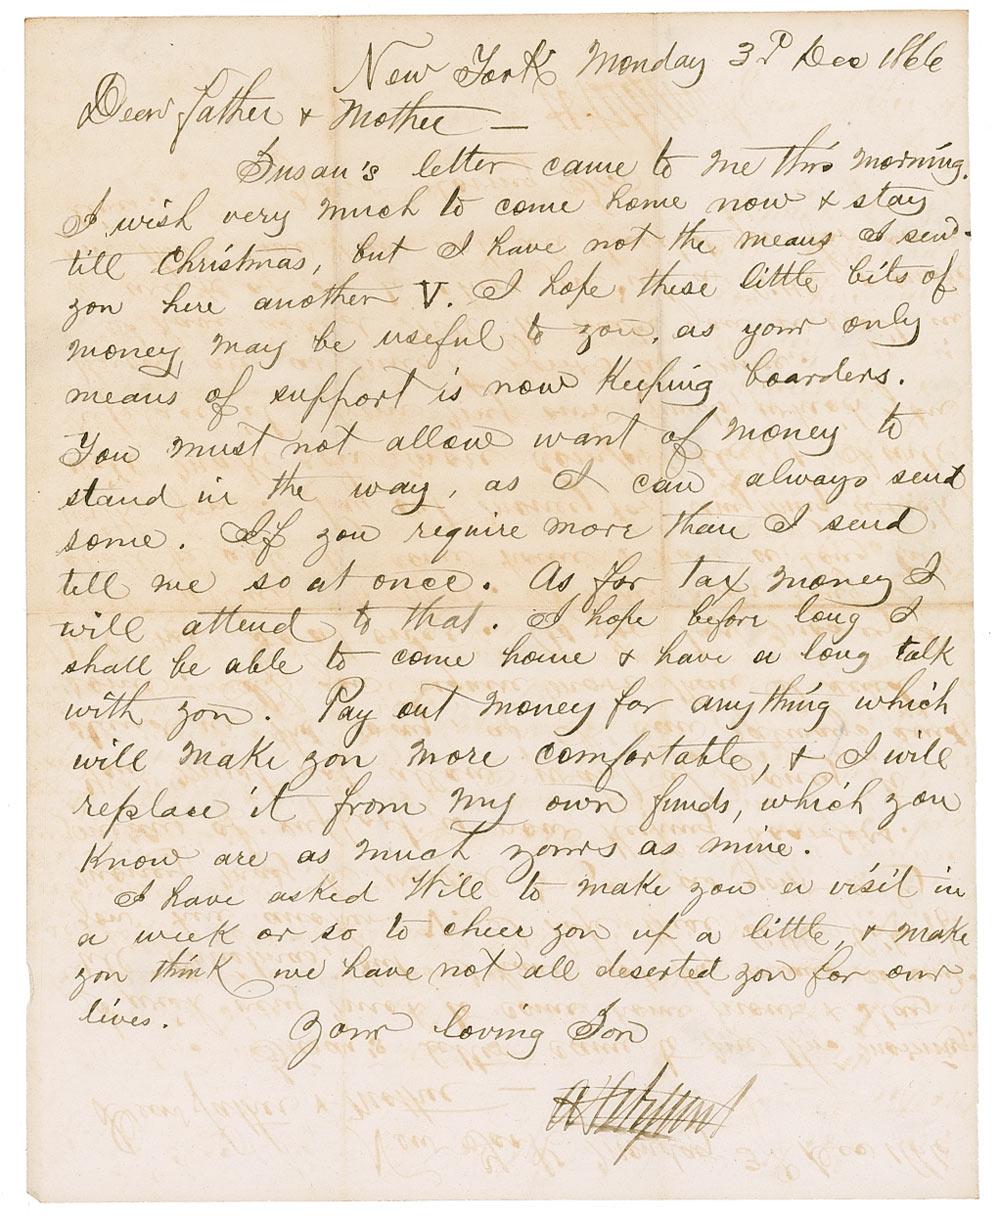 New York Monday 3d Dec 1866
Dear Father & Mother —
Susan's letter came to me this morning.
I wish very much to come home now & stay
till Christmas, but I have not the means I send
you here another V. I hope these little bits of
money may be useful to you, as your only
means of support is now keeping boarders.
You must not allow want of money to
stand in the way, as I can always send
some. If you require more than I send
tell me so at once. As for tax money I
will attend to that. I hope before long I
shall be able to come home & have a long talk
with you. Pay out money for anything which
will make you more comfortable, & I will
replace it from my own funds, which you
know are as much yours as mine.
I have asked Will to make you a visit in
a week or so to cheer you up a little, & make
you think we have not all deserted you for our
lives.
Your loving Son